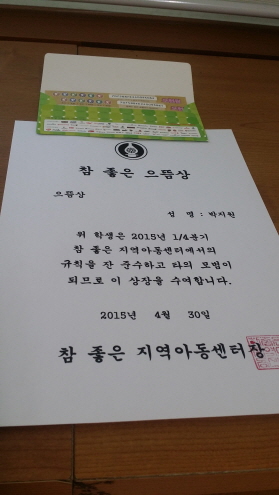 참 좋은 으뜸상
으뜸상
성 명 : 박지원
위 학생은 2015년 1/4분기
참 좋은 지역아동센터에서의
규칙을 잔 준수하고 타의 모범이
되므로 이 상장을 수여합니다.
2015년 4월 30일
참 좋은 지역아동센터장